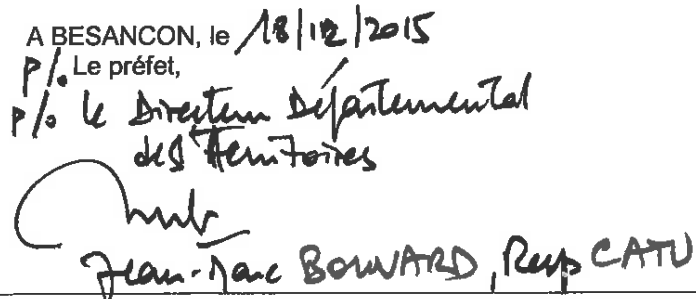 A BESANCON, le 18/12/2015
P/. Le préfet,
P/o le Directeur Départemental
des Territoires
Jean-Marc BOUVARD, Resp CATU